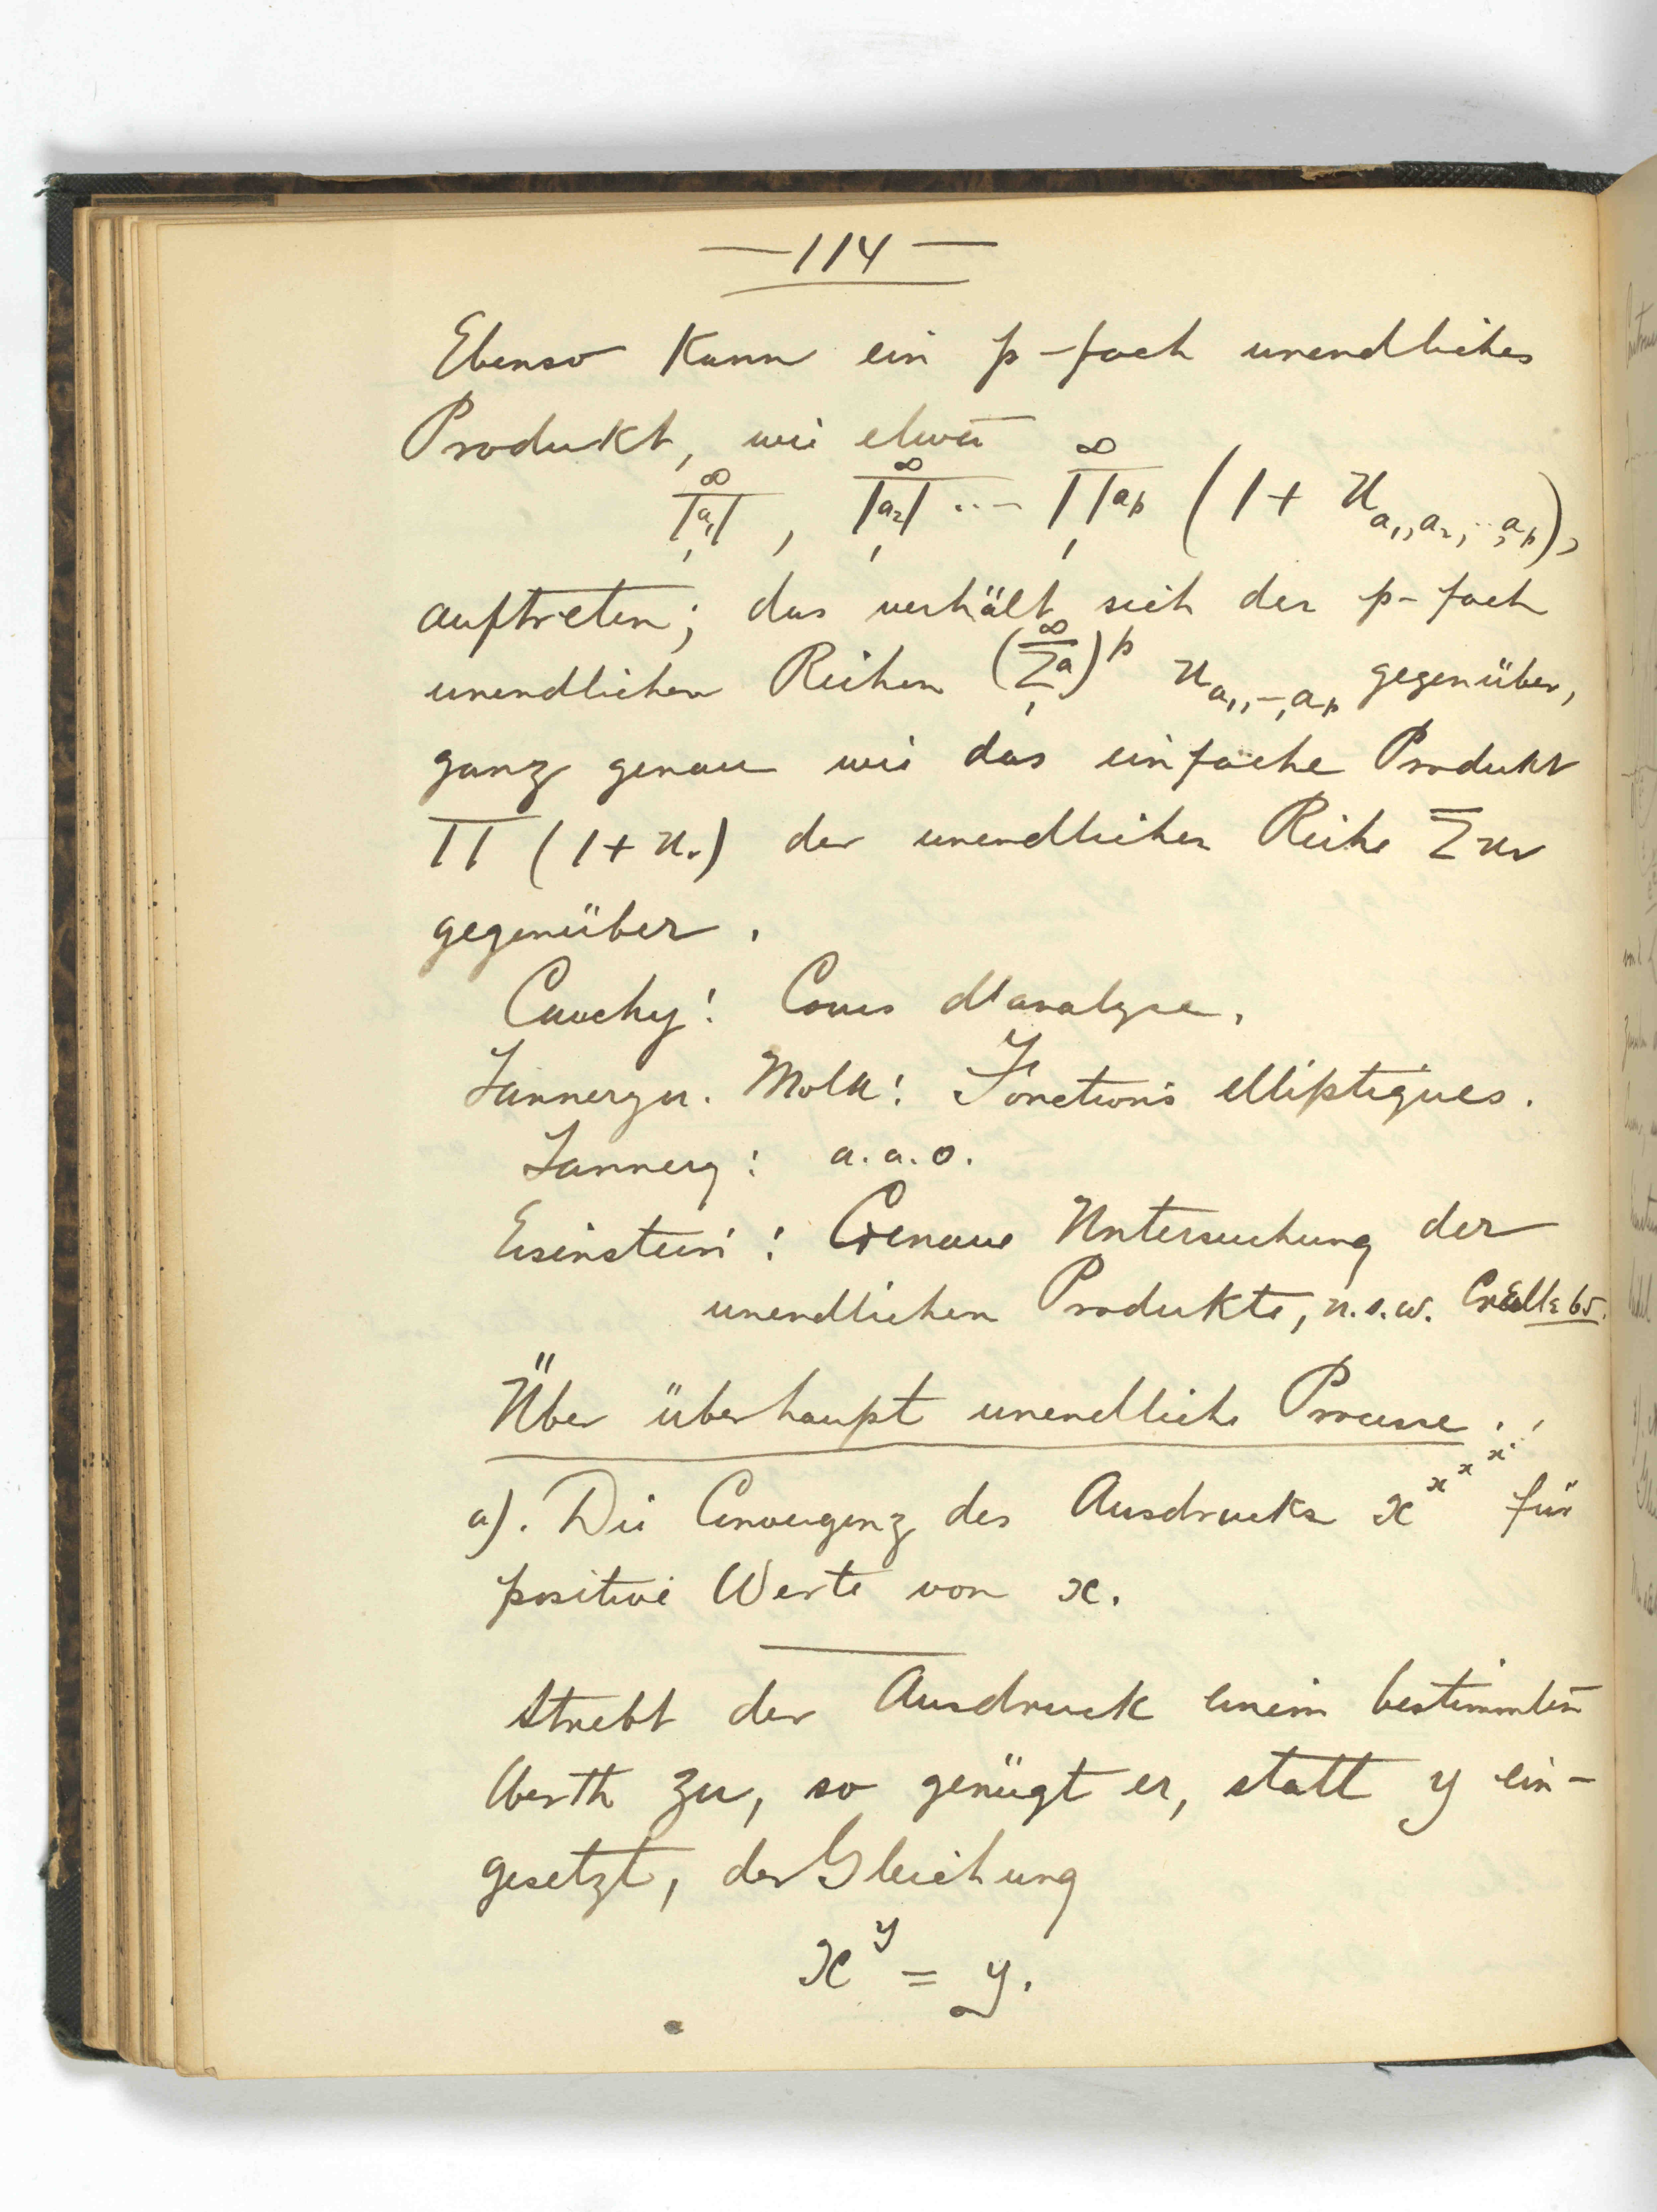 — 114 —
Ebenso kann ein p-fach unendliches
Produkt, wie etwa
∞∏a₁,₁ , ∞∏a₂,₁ ... ∞∏aₚ,₁ (1 + u a₁,a₂, ..,aₚ),
auftreten; das verhält sich der p-fach
unendlichen Reihen (∞Σa,₁)ᵖ u a₁,–,aₚ gegenüber,
ganz genau wie das einfache Produkt
∏ (1 + uᵥ) der unendlichen Reihe Σuᵥ
gegenüber.
Cauchy: Cours d'analyse.
Tannery u. Molk: Fonctions elliptiques.
Tannery: a.a.O.
Eisenstein: Genaue Untersuchung der
unendlichen Produkte, u.s.w. Crelle
Über überhaupt unendliche Prozesse.
a). Die Convergenz des Ausdrucks x^x^x^x^.^.^. für
positive Werte von x.
Strebt der Ausdruck einem bestimmten
Werth zu, so genügt er, statt y ein-
gesetzt, der Gleichung
x^y = y.